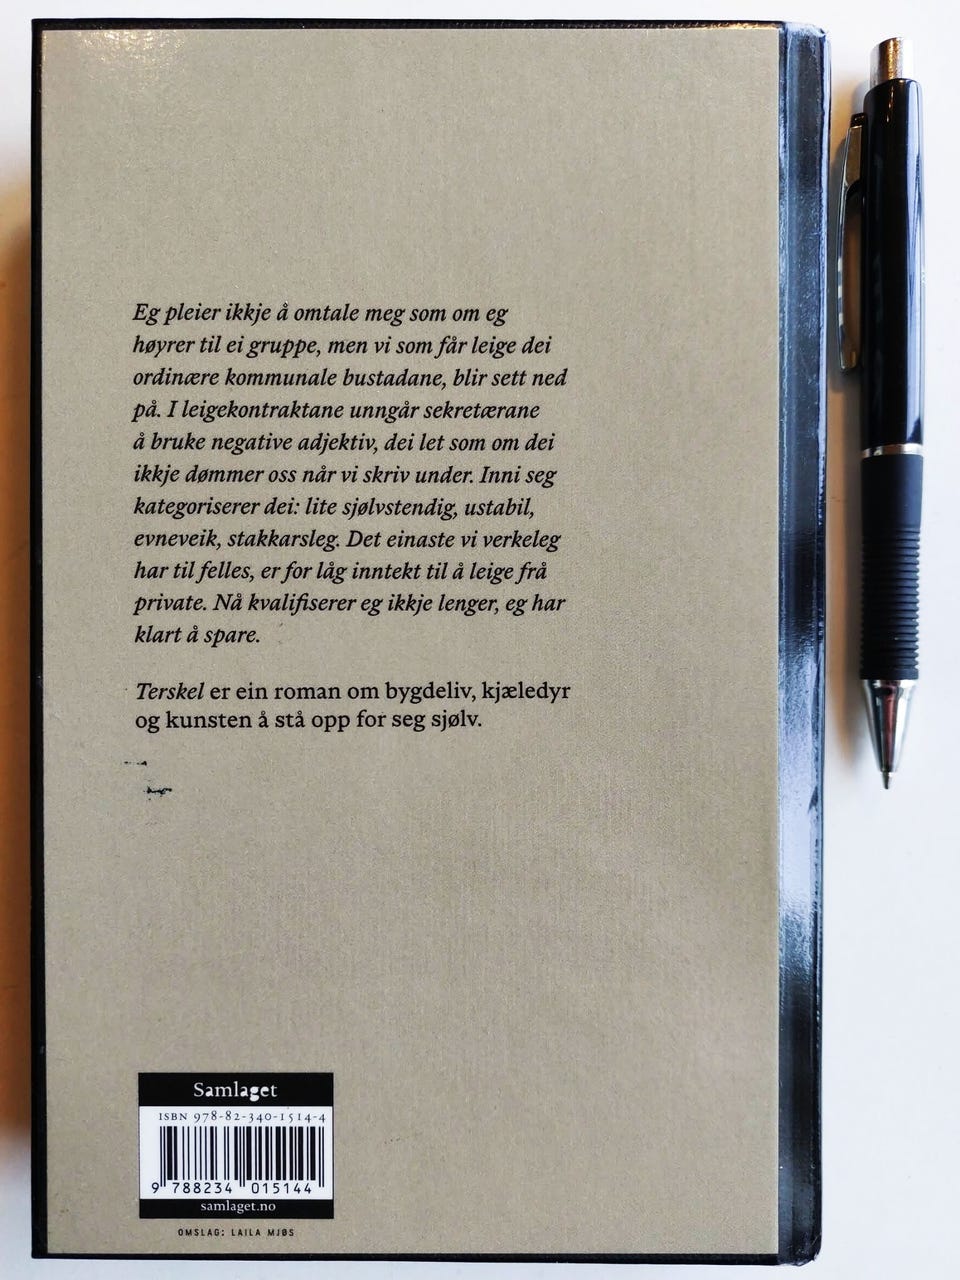 Eg pleier ikkje å omtale meg som om eg
høyrer til ei gruppe, men vi som får leige dei
ordinære kommunale bustadane, blir sett ned
på. I leigekontraktane unngår sekretærane
å bruke negative adjektiv, dei let som om dei
ikkje dømmer oss når vi skriv under. Inni seg
kategoriserer dei: lite sjølvstendig, ustabil,
evneveik, stakkarsleg. Det einaste vi verkeleg
har til felles, er for låg inntekt til å leige frå
private. Nå kvalifiserer eg ikkje lenger, eg har
klart å spare.
Terskel er ein roman om bygdeliv, kjæledyr
og kunsten å stå opp for seg sjølv.
Samlaget
ISBN 978-82-340-1514-4
9 788234 015144
samlaget.no
OMSLAG: LAILA MJØS